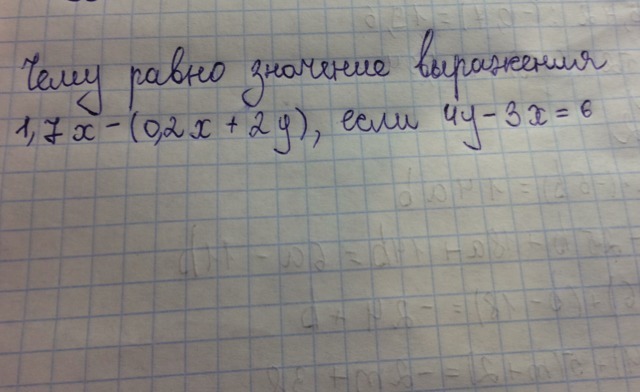 Чему равно значение выражения
1,7x - (0,2x + 2y), если 4y - 3x = 6